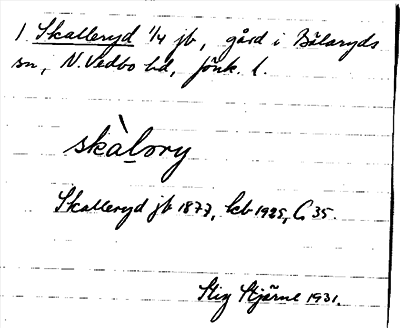 1 Skalleryd 1/4 jb, gård i Bälaryds
sn, N. Vedbo hd, Jönk. l.
skàlory
Skalleryd jb 1877, kb 1925, C 35.
Stig Stjärne 1931.